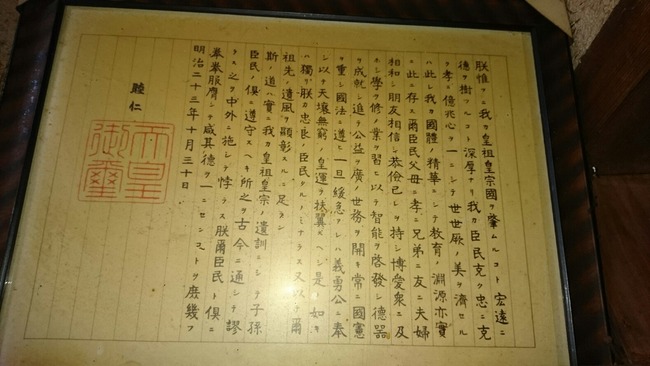 朕惟フニ我カ皇祖皇宗國ヲ肇ムルコト宏遠ニ
德ヲ樹ツルコト深厚ナリ我カ臣民克ク忠ニ克
ク孝ニ億兆心ヲ一ニシテ世世厥ノ美ヲ濟セル
ハ此レ我カ國體ノ精華ニシテ教育ノ淵源亦實
ニ此ニ存ス爾臣民父母ニ孝ニ兄弟ニ友ニ夫婦
相和シ朋友相信シ恭儉己レヲ持シ博愛衆ニ及
ホシ學ヲ修メ業ヲ習ヒ以テ智能ヲ啓發シ德器
ヲ成就シ進テ公益ヲ廣メ世務ヲ開キ常ニ國憲
ヲ重シ國法ニ遵ヒ一旦緩急アレハ義勇公ニ奉
シ以テ天壤無窮ノ皇運ヲ扶翼スヘシ是ノ如キ
ハ獨リ朕カ忠良ノ臣民タルノミナラス又以テ爾
祖先ノ遺風ヲ顯彰スルニ足ラン
斯ノ道ハ實ニ我カ皇祖皇宗ノ遺訓ニシテ子孫
臣民ノ俱ニ遵守スヘキ所之ヲ古今ニ通シテ謬
ラス之ヲ中外ニ施シテ悖ラス朕爾臣民ト俱ニ
拳拳服膺シテ咸其德ヲ一ニセンコトヲ庶幾フ
明治二十三年十月三十日
睦仁
天皇
御璽